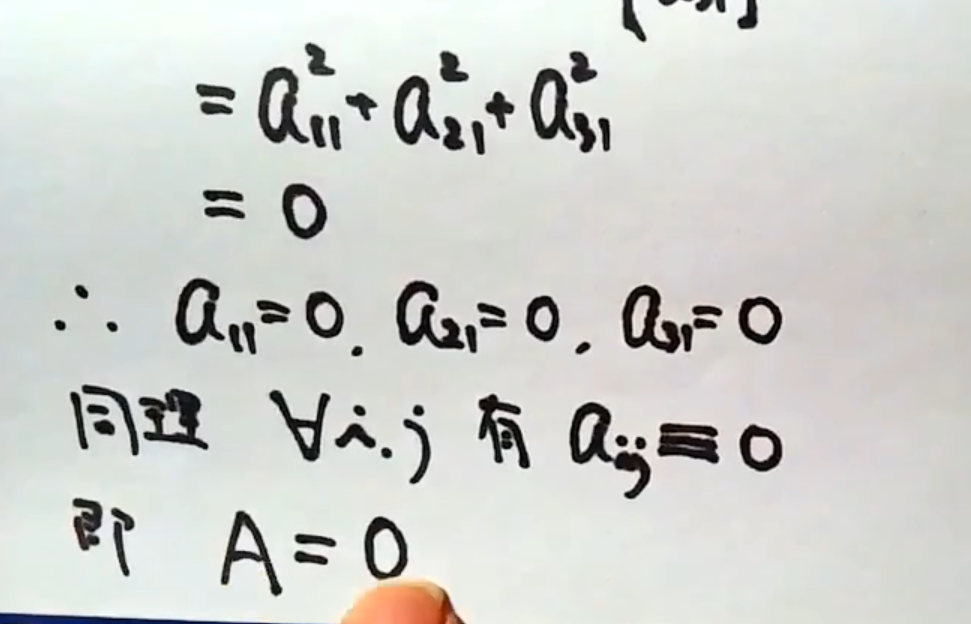 = a₁₁² + a₂₁² + a₃₁²
= 0
∴ a₁₁ = 0. a₂₁ = 0. a₃₁ = 0
同理 ∀i.j 有 aᵢⱼ ≡ 0
即 A = 0